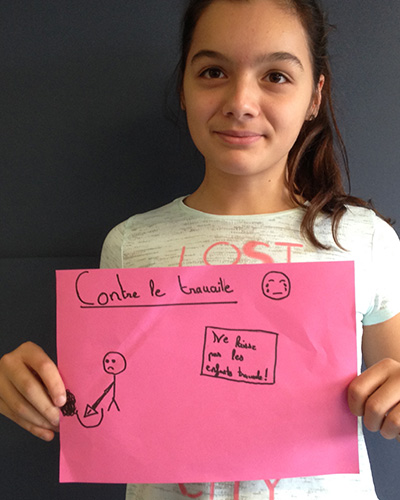 LOST
Contre le travaille
Ne laisse
pas les
enfants travaille!
CITY